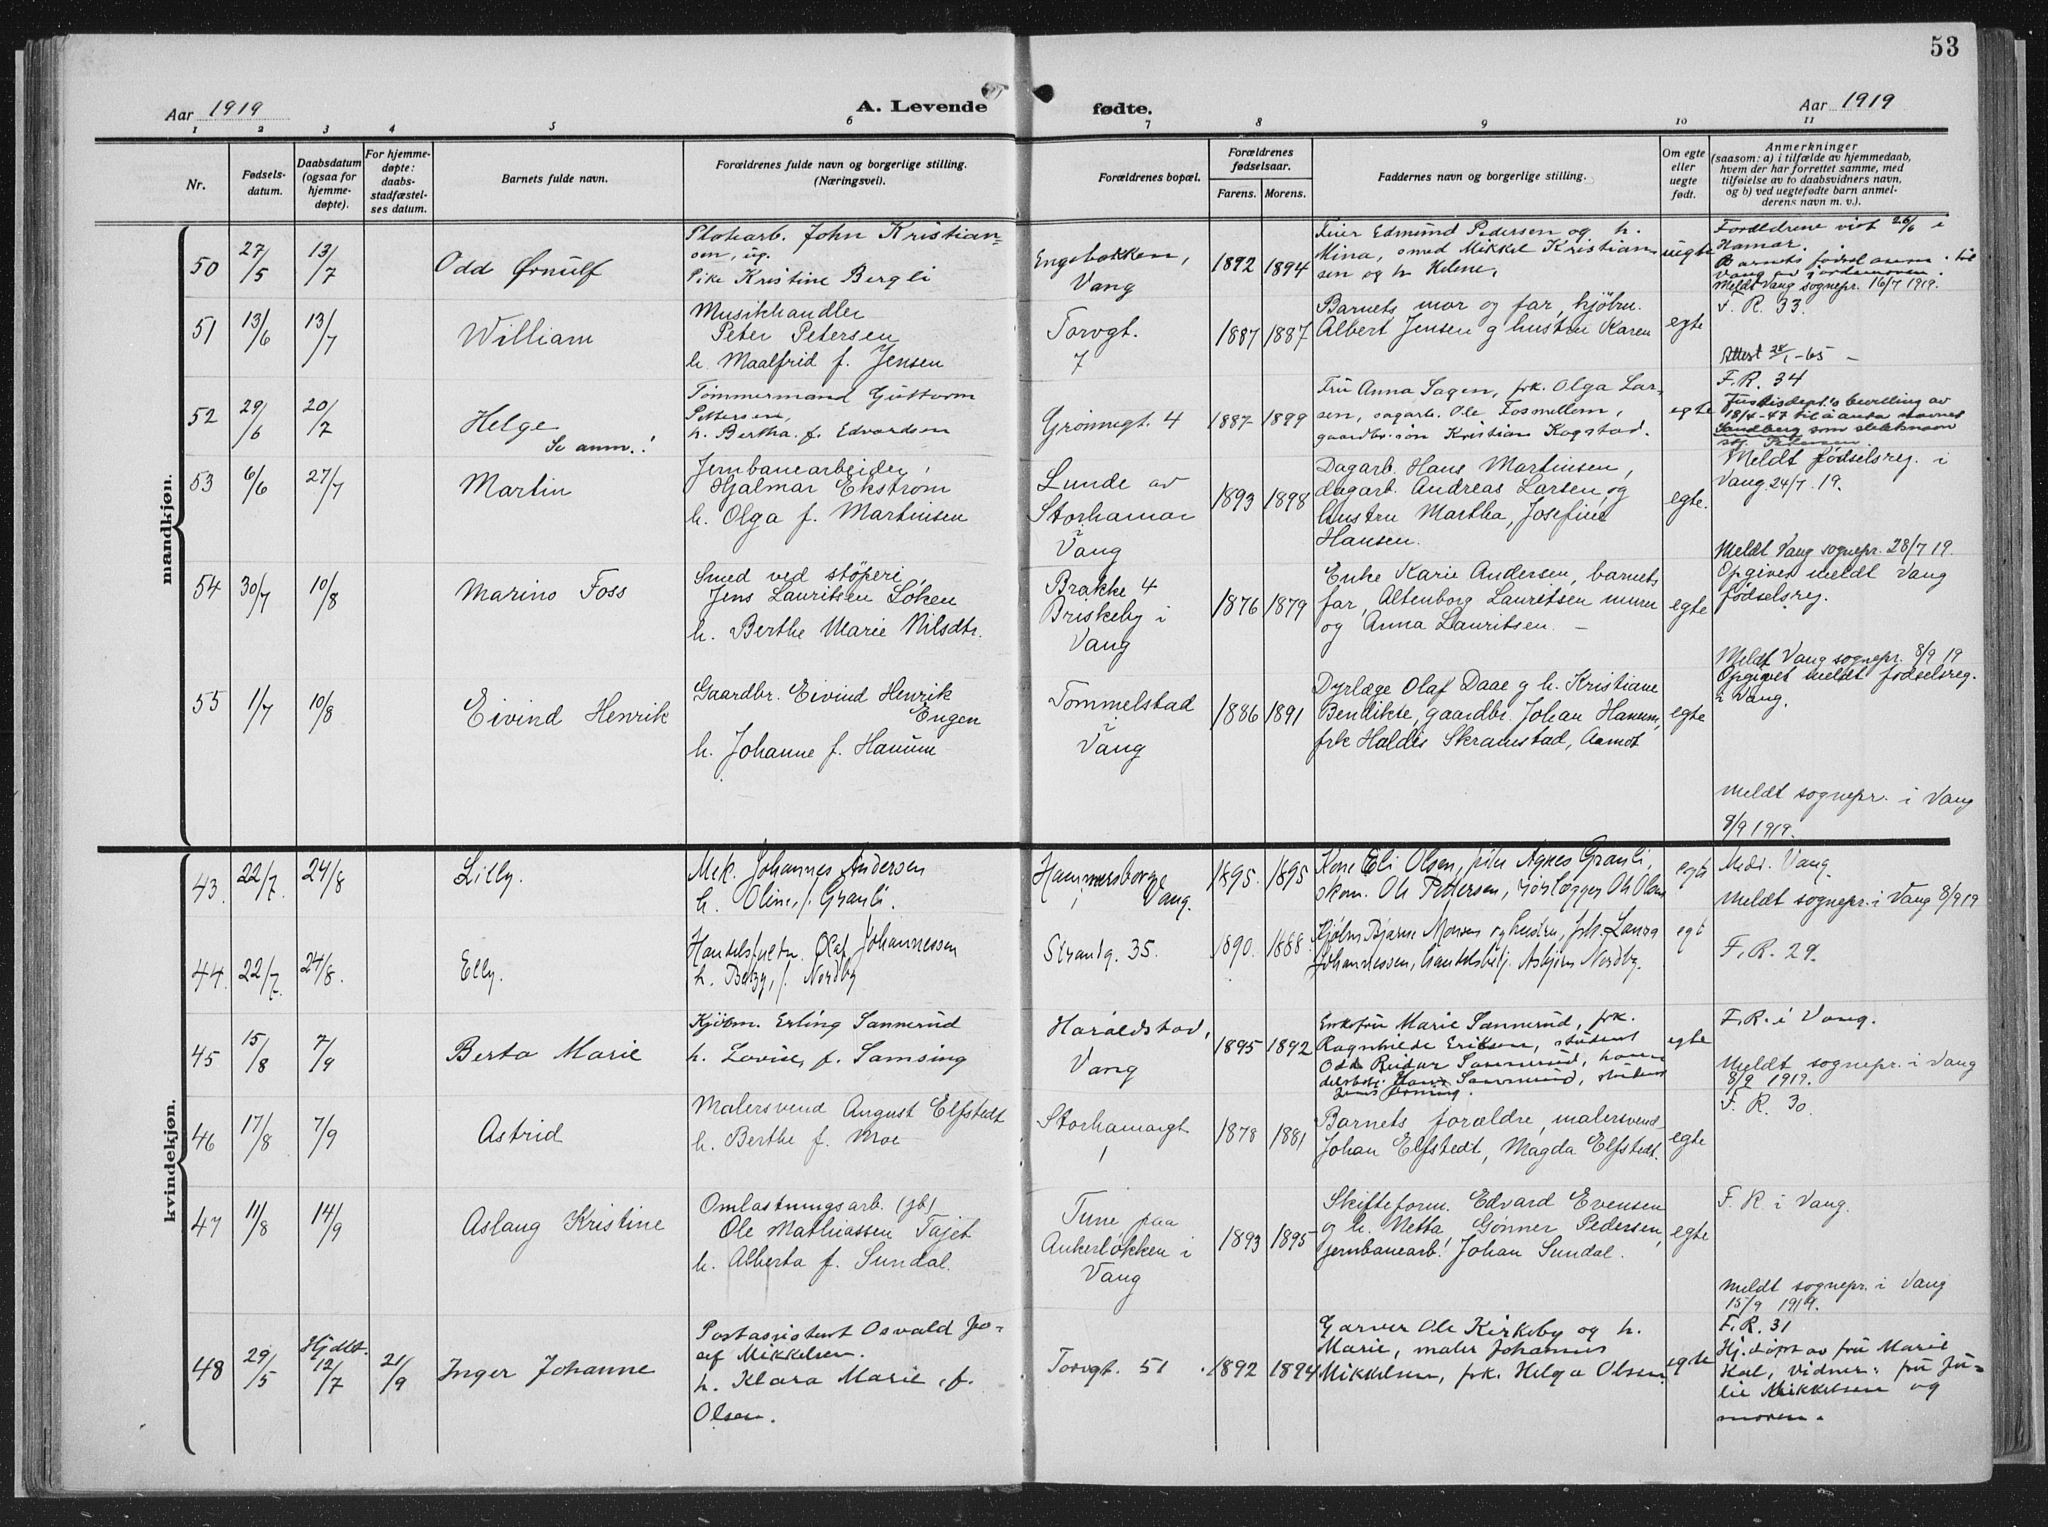 53
Aar 1919
A. Levende fødte.
Aar 1919
1 2 3 4 5 6 7 8 9 10 11
Nr.
Fødsels-
datum.
Daabsdatum
(ogsaa for
hjemme-
døpte).
For hjemme-
døpte:
daabs-
stadfæstel-
ses datum.
Barnets fulde navn.
Forældrenes fulde navn og borgerlige stilling.
(Næringsvei).
Forældrenes bopæl.
Forældrenes
fødselsaar.
Farens. Morens.
Faddernes navn og borgerlige stilling.
Om egte
eller
uegte
født.
Anmerkninger
(saasom: a) i tilfælde av hjemmedaab,
hvem der har forrettet samme, med
tilføielse av to daabsvidners navn,
og b) ved uegtefødte barn anmel-
derens navn m. v.).
mandkjøn.
50 27/5 13/7
Odd Ørnulf
John Kristian-
sen, ug.
Pike Kristine Bergli
Engebakken,
Vang
1892 1894
Edmund Pedersen og h.
Mina, smed Mikkel Kristian
sen og h. Helene,
uegte
Forældrene viet 26/6 i
Hamar.
Barnets fødsel anm. til
Vang av jordemoren.
Meldt Vang sognepr. 16/7 1919.
51 13/6 13/7
William
Musikhandler
Peter Petersen
h. Maalfrid f. Jensen
Torvgt.
7
1887 1887
Barnets mor og far, kjøbm.
Albert Jensen g hustru Karen
egte
F. R. 33.
Attest 28/1-65 –
52 29/6 20/7
Helge
Se anm.!
Tømmermand Guttorm
Pettersen,
h. Bertha f. Edvardsen
Grønnegt. 4
1887 1899
Fru Anna Sagen, frk. Olga Lar-
sen, sagarb. Ole Fosmellem,
gaardbr.søn Kristian Kogstad.
egte
F.R. 34
Justisdept.s bevilling av
18/4-47 til å anta navnet
Sandberg som slektsnavn
53 6/6 27/7
Martin
Jernbanearbeider
Hjalmar Ekstrøm
h. Olga f. Martinsen
Lunde av
Storhamar
i Vang
1893 1898
Dagarb. Hans Martinsen,
dagarb. Andreas Larsen og
hustru Martha, Josefine
Hansen.
egte.
Meldt fødselsreg. i
Vang 24/7 19.
Meldt Vang sognepr. 28/7 19.
54 30/7 10/8
Marino Foss
Smed ved støperi
Jens Lauritsen Løken
h. Berthe Marie Nilsdtr.
Brakke 4
Briskeby i
Vang
1876 1879
Enke Karie Andersen, barnets
far, Altenborg Lauretsen murer
og Anna Lauritsen. –
egte
Opgives meldt Vang
fødselsreg.
Meldt Vang sognepr. 8/9 19
55 1/7 10/8
Eivind Henrik
Gaardbr. Eivind Henrik
Engen
h. Johanne f. Hanum
Tommelstad
i
Vang
1886 1891
Dyrlæge Olaf Daae g h. Kristiane
Bendikte, gaardbr. Johan Hanum,
frk Haldis Skramstad, Aamot
egte
Opgivet meldt fødselsreg.
i Vang.
Meldt sognepr. i Vang
8/9 1919.
kvindekjøn.
43 22/7. 24/8
Lilly.
Mek. Johannes Andersen
h. Oline, f. Granli.
Hammersborg,
Vang.
1895. 1895
Kone Eli Olsen, pike Agnes Granli,
skom. Ole Pettersen, rørlægger Ole Olsen
egte
Medr. Vang.
Meldt sognepr. i Vang 8/9 19
44. 22/7. 24/8.
Elly.
Olaf Johannessen
h. f. Nordby
Strandg. 35.
1890. 1888.
Kjøbm Bjarne Monsen og hustru, frk. Laura
Johannessen, handelsbetj. Asbjørn Nordby.
egt
F. R. 29.
45 15/8 7/9
Berta Marie
Kjøbm. Erling Sannerud
h. Lovise, f. Samsing
Haraldstad,
Vang
1895 1892
Enkefru Marie Sannerud, frk.
Ragnhilde Eriksen, student
Odd Reidar Sannerud, han-
delsbest. Hans Sannerud, student
egte
F. R. i Vang.
Meldt sognepr. i Vang
8/9 1919.
46 17/8 7/9
Astrid
Malersvend August Elfstedt
h. Berthe f. Moe
Storhamargt
1
1878 1881
Barnets forældre, malersvend
Johan Elfstedt, Magda Elfstedt.
egte
F. R. 30.
47 11/8 14/9
Aslaug Kristine
Omlastningsarb. (jb)
Ole Mathiassen Tajet
h. Alberta f. Sundal.
Tune paa
Ankerløkken i
Vang
1893 1895
Skifteform. Edvard Evensen
og h. Netta, Gønner Pedersen,
jernbanearb. Johan Sundal.
egte
F. R i Vang.
Meldt sognepr. i Vang
15/9 1919.
48 29/5 Hjdbt. 12/7 21/9
Inger Johanne
Postassistent Osvald Jo-
sef Mikkelsen.
h. Klara Marie, f.
Olsen.
Torvgt. 51
1892 1894
Garver Ole Kirkeby og h.
Marie, maler Johannes
Mikkelsen, frk. Helga Olsen.
egte
F. R. 31
Hj.døpt av fru Marie
Kal, vidner: fru Ju-
lie Mikkelsen og
moren.